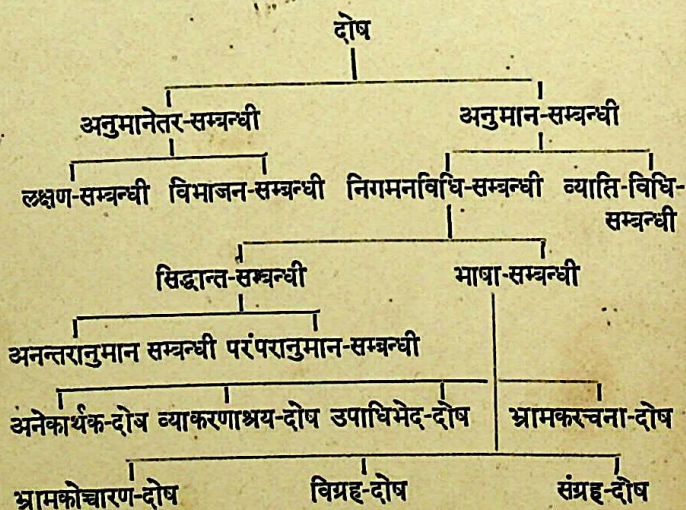 दोष
अनुमानेतर-सम्बन्धी अनुमान-सम्बन्धी
लक्षण-सम्बन्धी विभाजन-सम्बन्धी निगमनविधि-सम्बन्धी व्याप्ति-विधि-
सम्बन्धी
सिद्धान्त-सम्बन्धी भाषा-सम्बन्धी
अनन्तरानुमान सम्बन्धी परंपरानुमान-सम्बन्धी
अनेकार्थक-दोष व्याकरणाश्रय-दोष उपाधिभेद-दोष भ्रामकरचना-दोष
भ्रामकोच्चारण-दोष विग्रह-दोष संग्रह-दोष